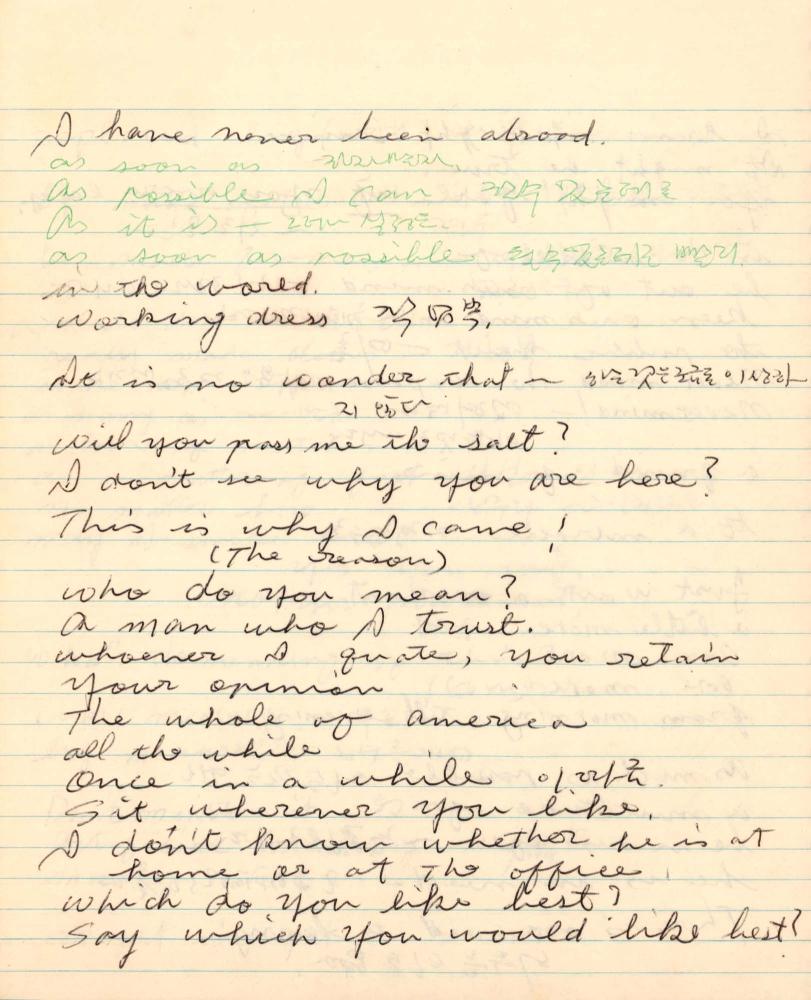 I have never been abroad.
as soon as
As possible I can 할수 있는데로
As it is —
as soon as possible 될수 있는데로 빨리.
in the world.
working dress 작업복.
It is no wonder that ~ 하는것은 조금도 이상하
지 않다
will you pass me the salt?
I don't see why you are here?
This is why I came!
(The reason)
who do you mean?
A man who I trust.
whoever I quote, you retain
your opinion
The whole of america
all the while
Once in a while 이따금.
Sit wherever you like.
I don't know whether he is at
home or at the office.
which do you like best?
Say which you would like best?